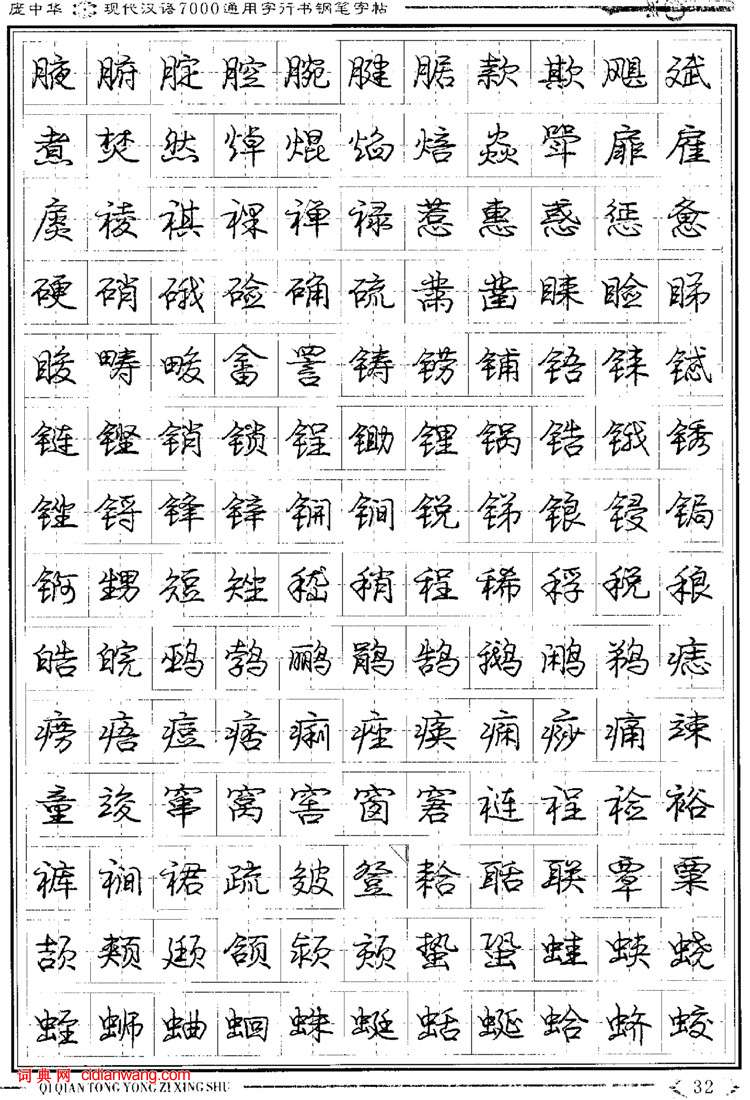 庞中华 现代汉语7000通用字行书钢笔字帖
腋腑腚腔腕腱腒款欺飓斌
煮焚然焯焜焰焙焱斝扉雇
扊祾祺祼禅禄惹惠惑惩惫
硬硝硪硷确硫黹凿睐睑睇
睃畴畯畲詈铸铹铺铻铼铽
链铿销锁锃锄锂锅锆锇锈
锉锊锋锌锎锏锐锑锒锓锔
锕甥短矬嵇稍程稀稃税稂
皓皖鹀鹁鹂鹃鹄鹅鹇鹈痣
痨痦痘痞痢痤痪痫痧痛竦
童竣窜窝窖窗窘裢裎裣裕
裤裥裙疏皴登耠聒联覃粟
颉颊颋颌颍颏蛰蛩蛙蛱蛲
蛭蛳蛐蛔蛛蜓蛞蜒蛤蛴蛟
词典网 cidianwang.com
QI QIAN TONG YONG ZI XING SHU 32